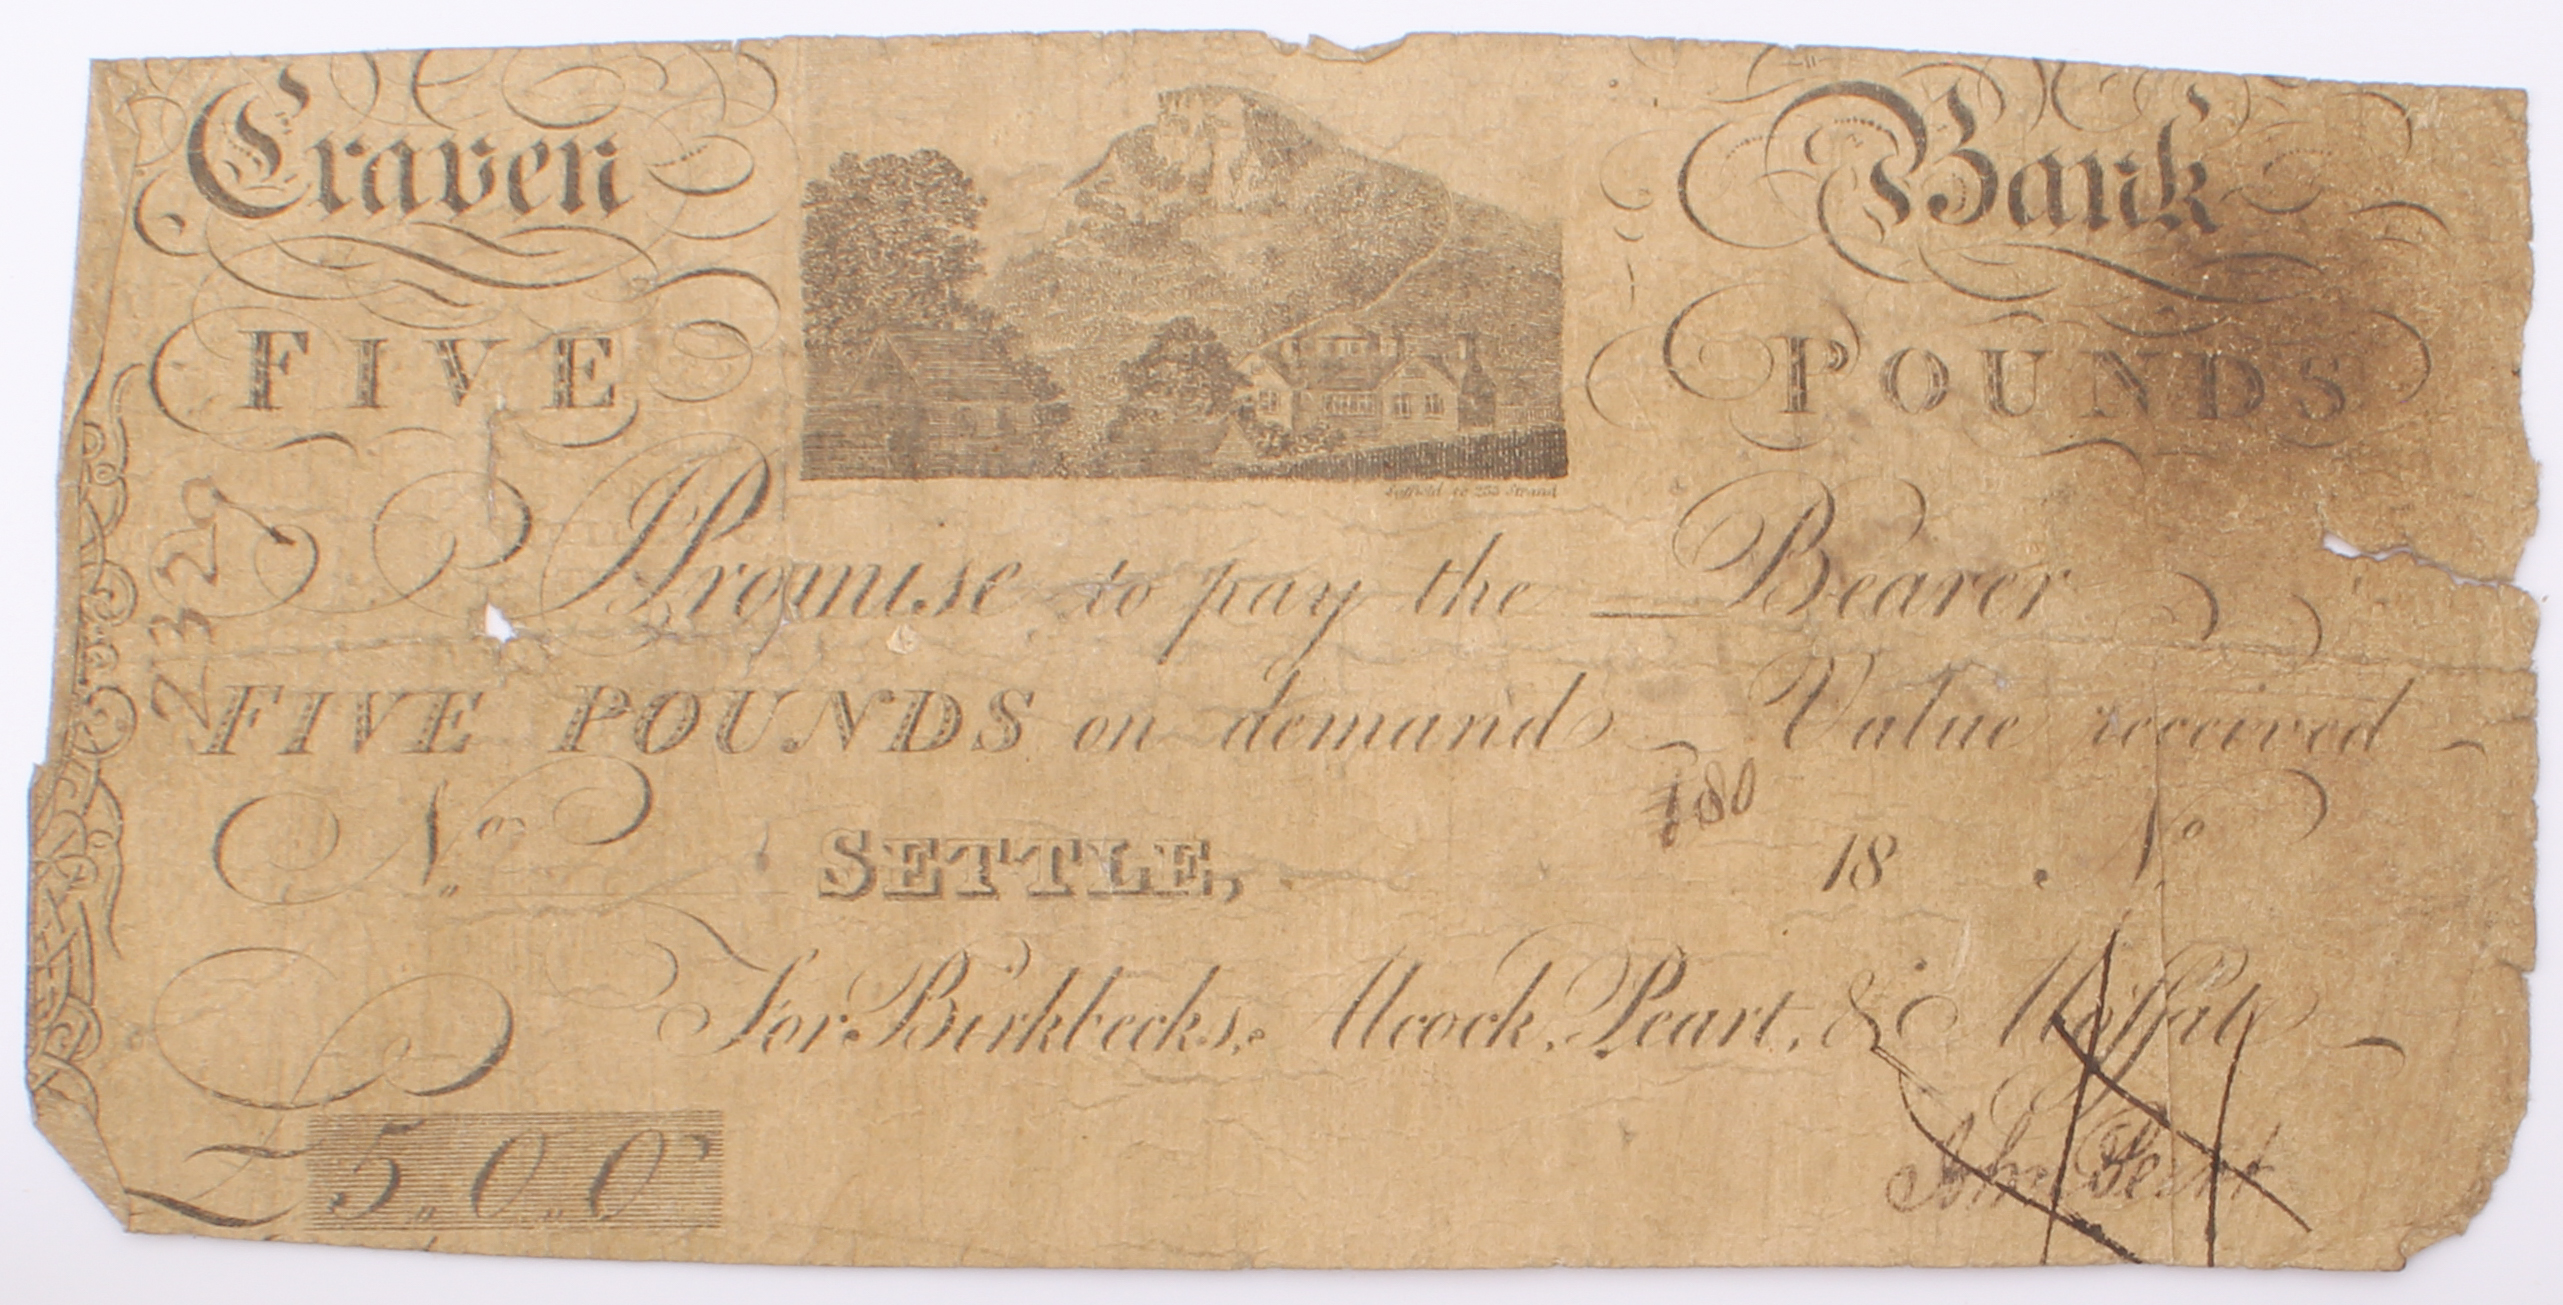 Craven Bank
FIVE POUNDS
2329
to 255 Strand
Promise to pay the Bearer
FIVE POUNDS on demand Value received
180
No SETTLE, 18 . No
For Birkbecks, Alcock, Peart, & Moffat
John Peart
5,,0,,0